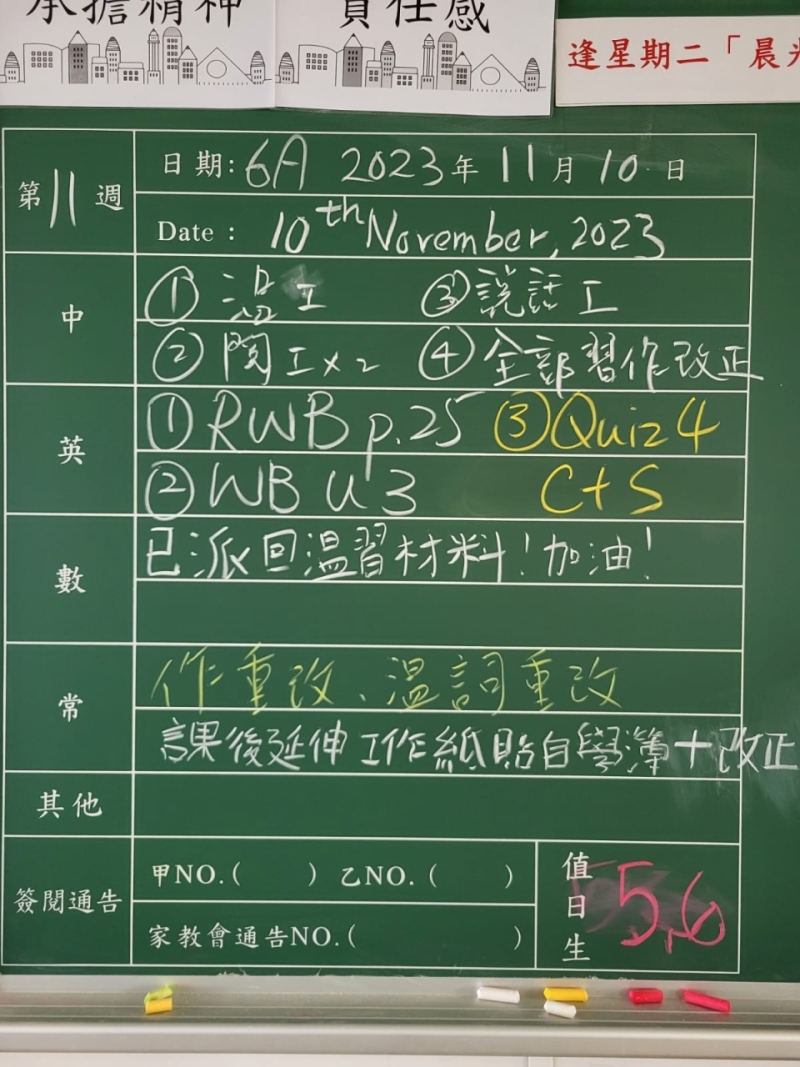 承擔精神
責任感
逢星期二「晨光
第11週
日期: 6A 2023年11月10日
Date : 10th November, 2023
中
① 温工 ③ 說話工
② 閱工x2 ④ 全部習作改正
英
① RWB p.25 ③ Quiz 4
② WB U3 C+S
數
已派回溫習材料!加油!
常
作重改、溫詞重改
課後延伸工作紙貼自學簿+改正
其他
簽閱通告
甲NO.( ) 乙NO.( )
家教會通告NO.( )
值日生
5,6